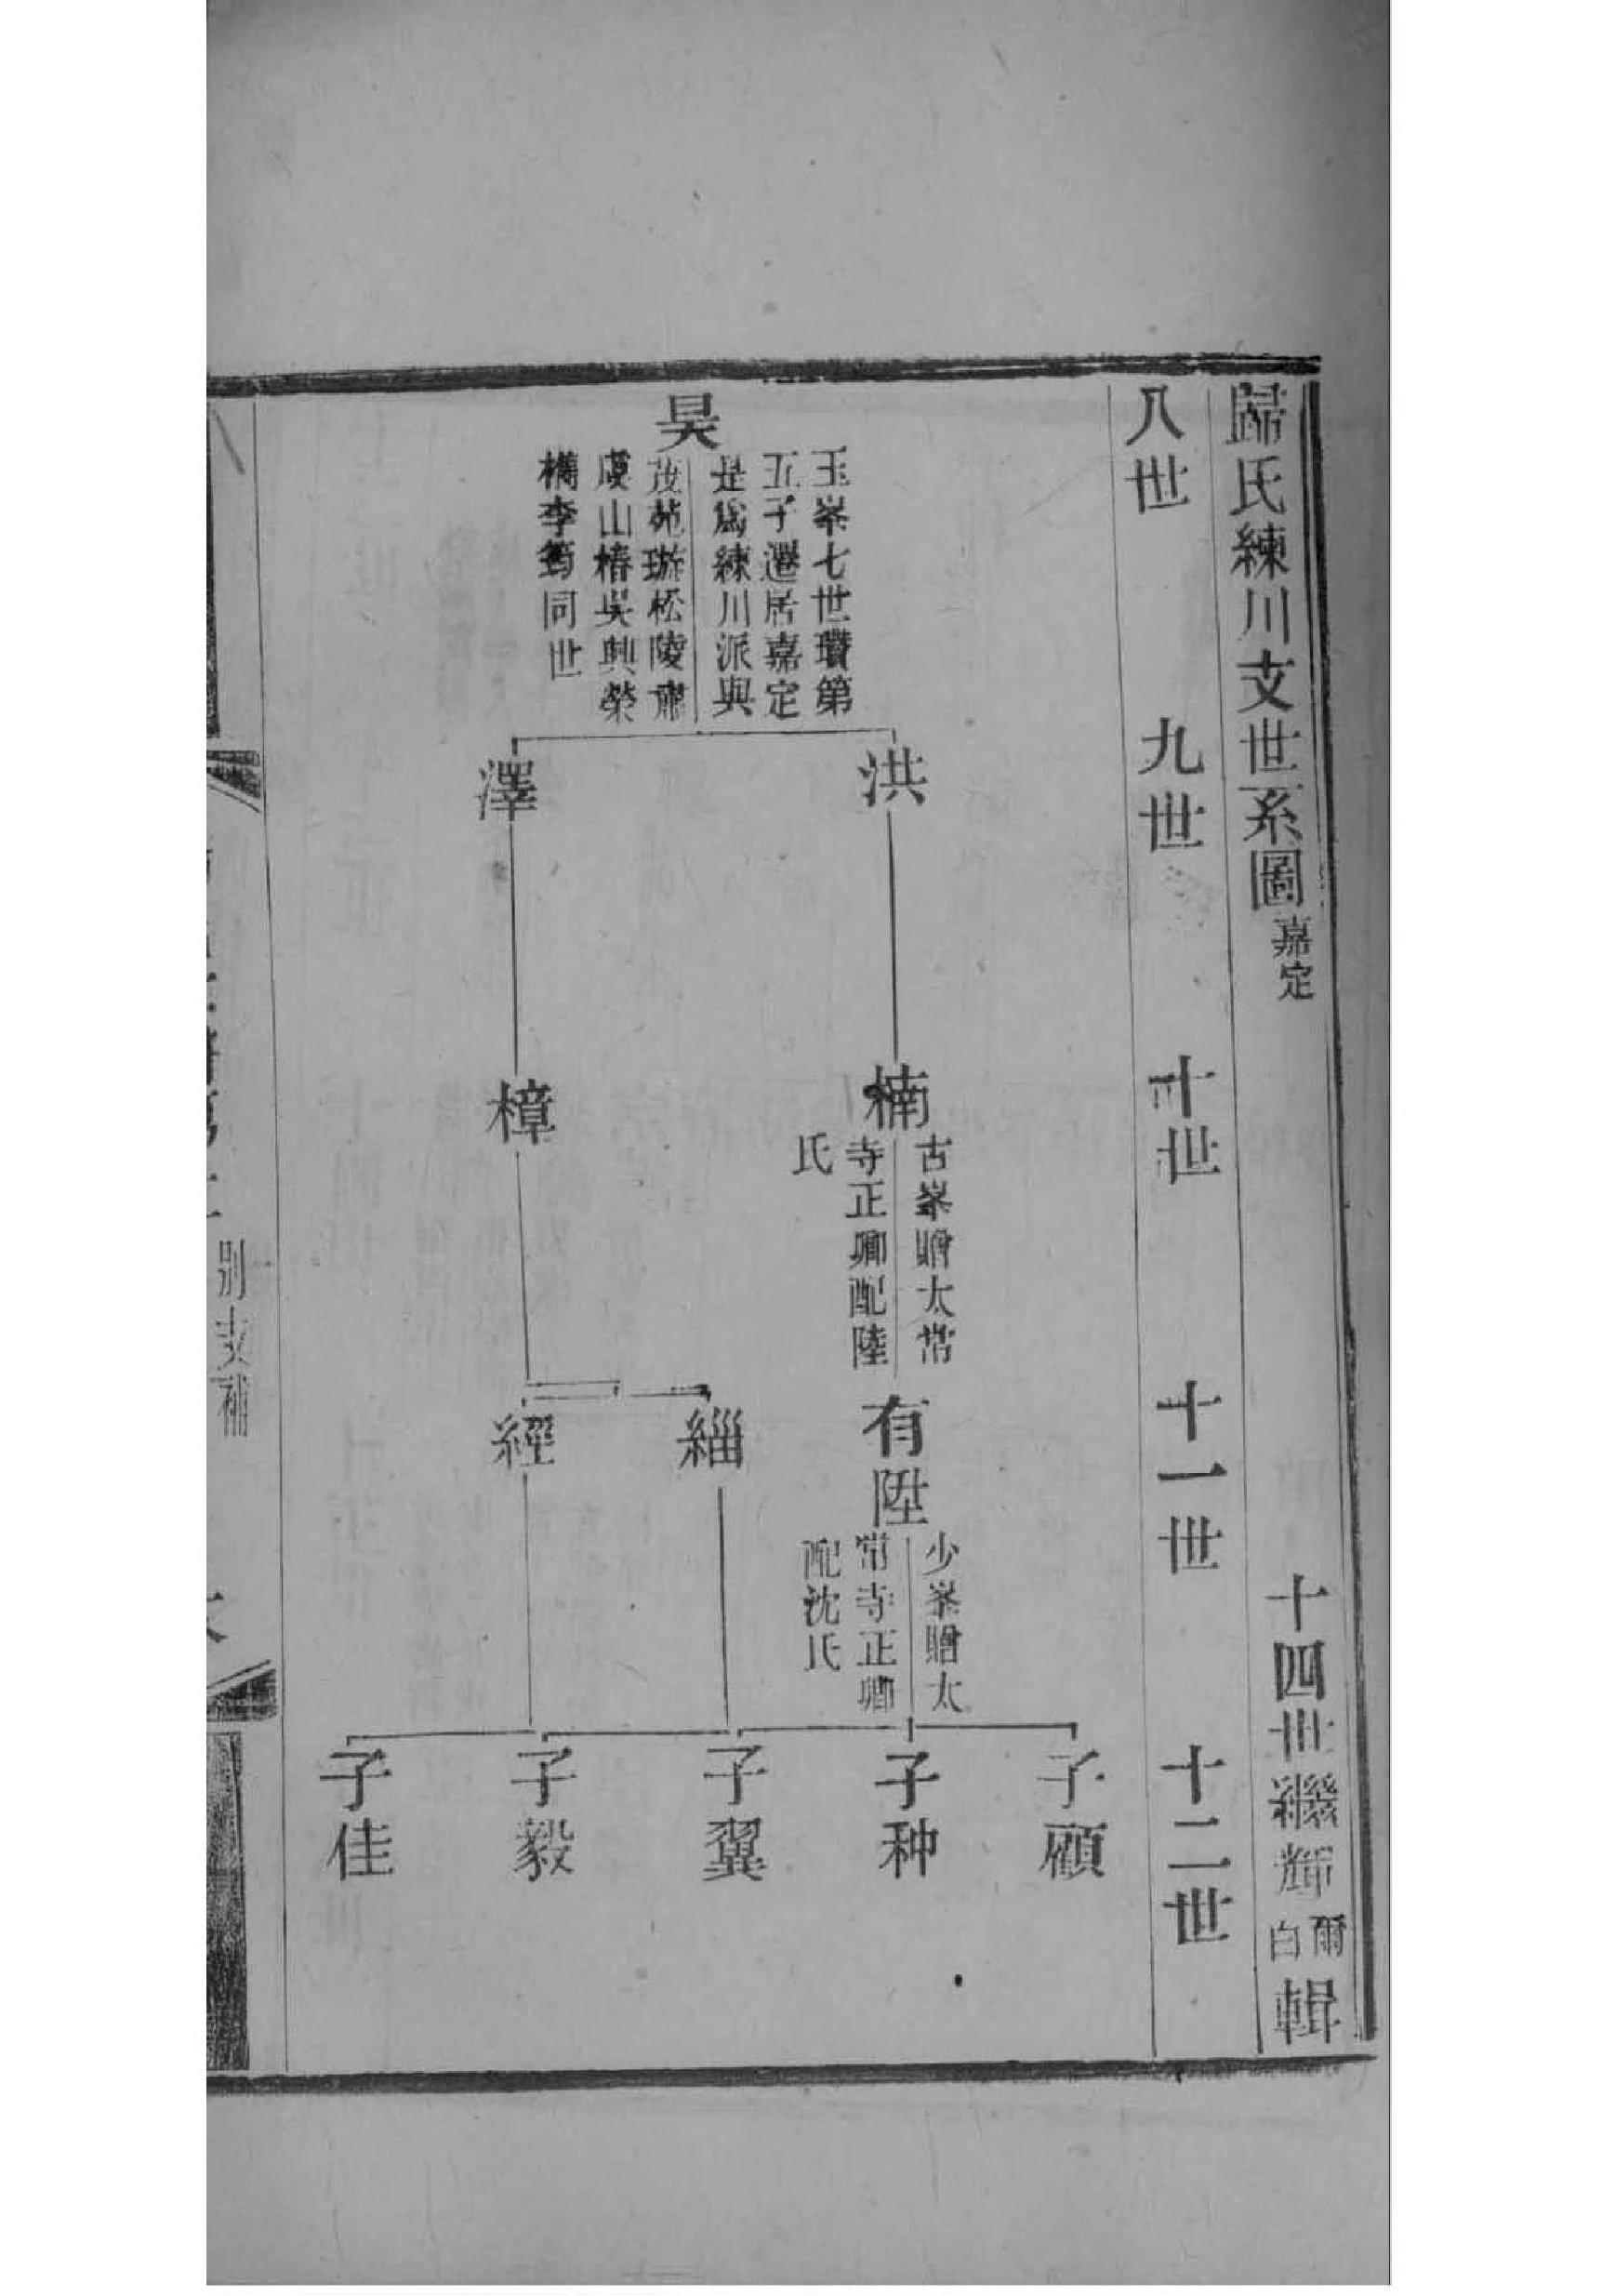 歸氏練川支世系圖嘉定
十四世繼輝爾白輯
八世
九世
十世
十一世
十二世
昊
玉峯七世璸第
五子遷居嘉定
是爲練川派與
茂苑璇松陵肅
虞山椿吳興榮
檇李筠同世
洪
澤
楠
古峯贈太常
寺正卿配陸
氏
樟
有陞
少峯贈太
常寺正卿
配沈氏
緇
經
子顧
子种
子翼
子毅
子佳
別支補